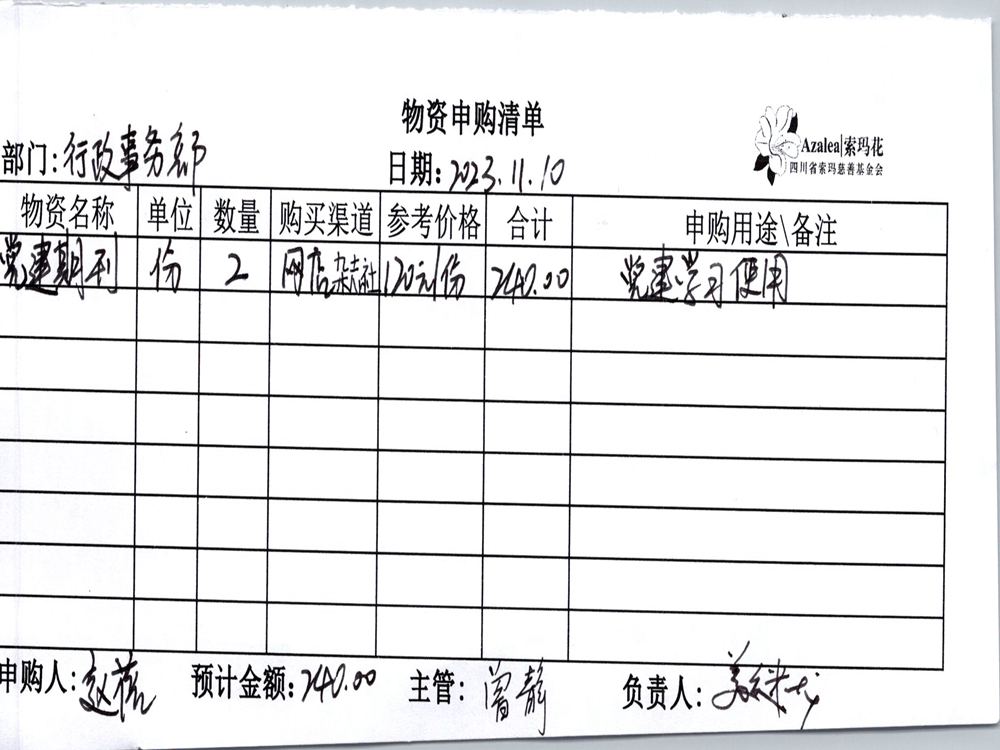 物资申购清单
Azalea|索玛花
四川省索玛慈善基金会
部门:行政事务部 日期:2023.11.10
物资名称 单位 数量 购买渠道 参考价格 合计 申购用途\备注
党建期刊 份 2 网店杂志社 120元/份 240.00 党建学习使用
申购人: 预计金额:240.00 主管:曾静 负责人: